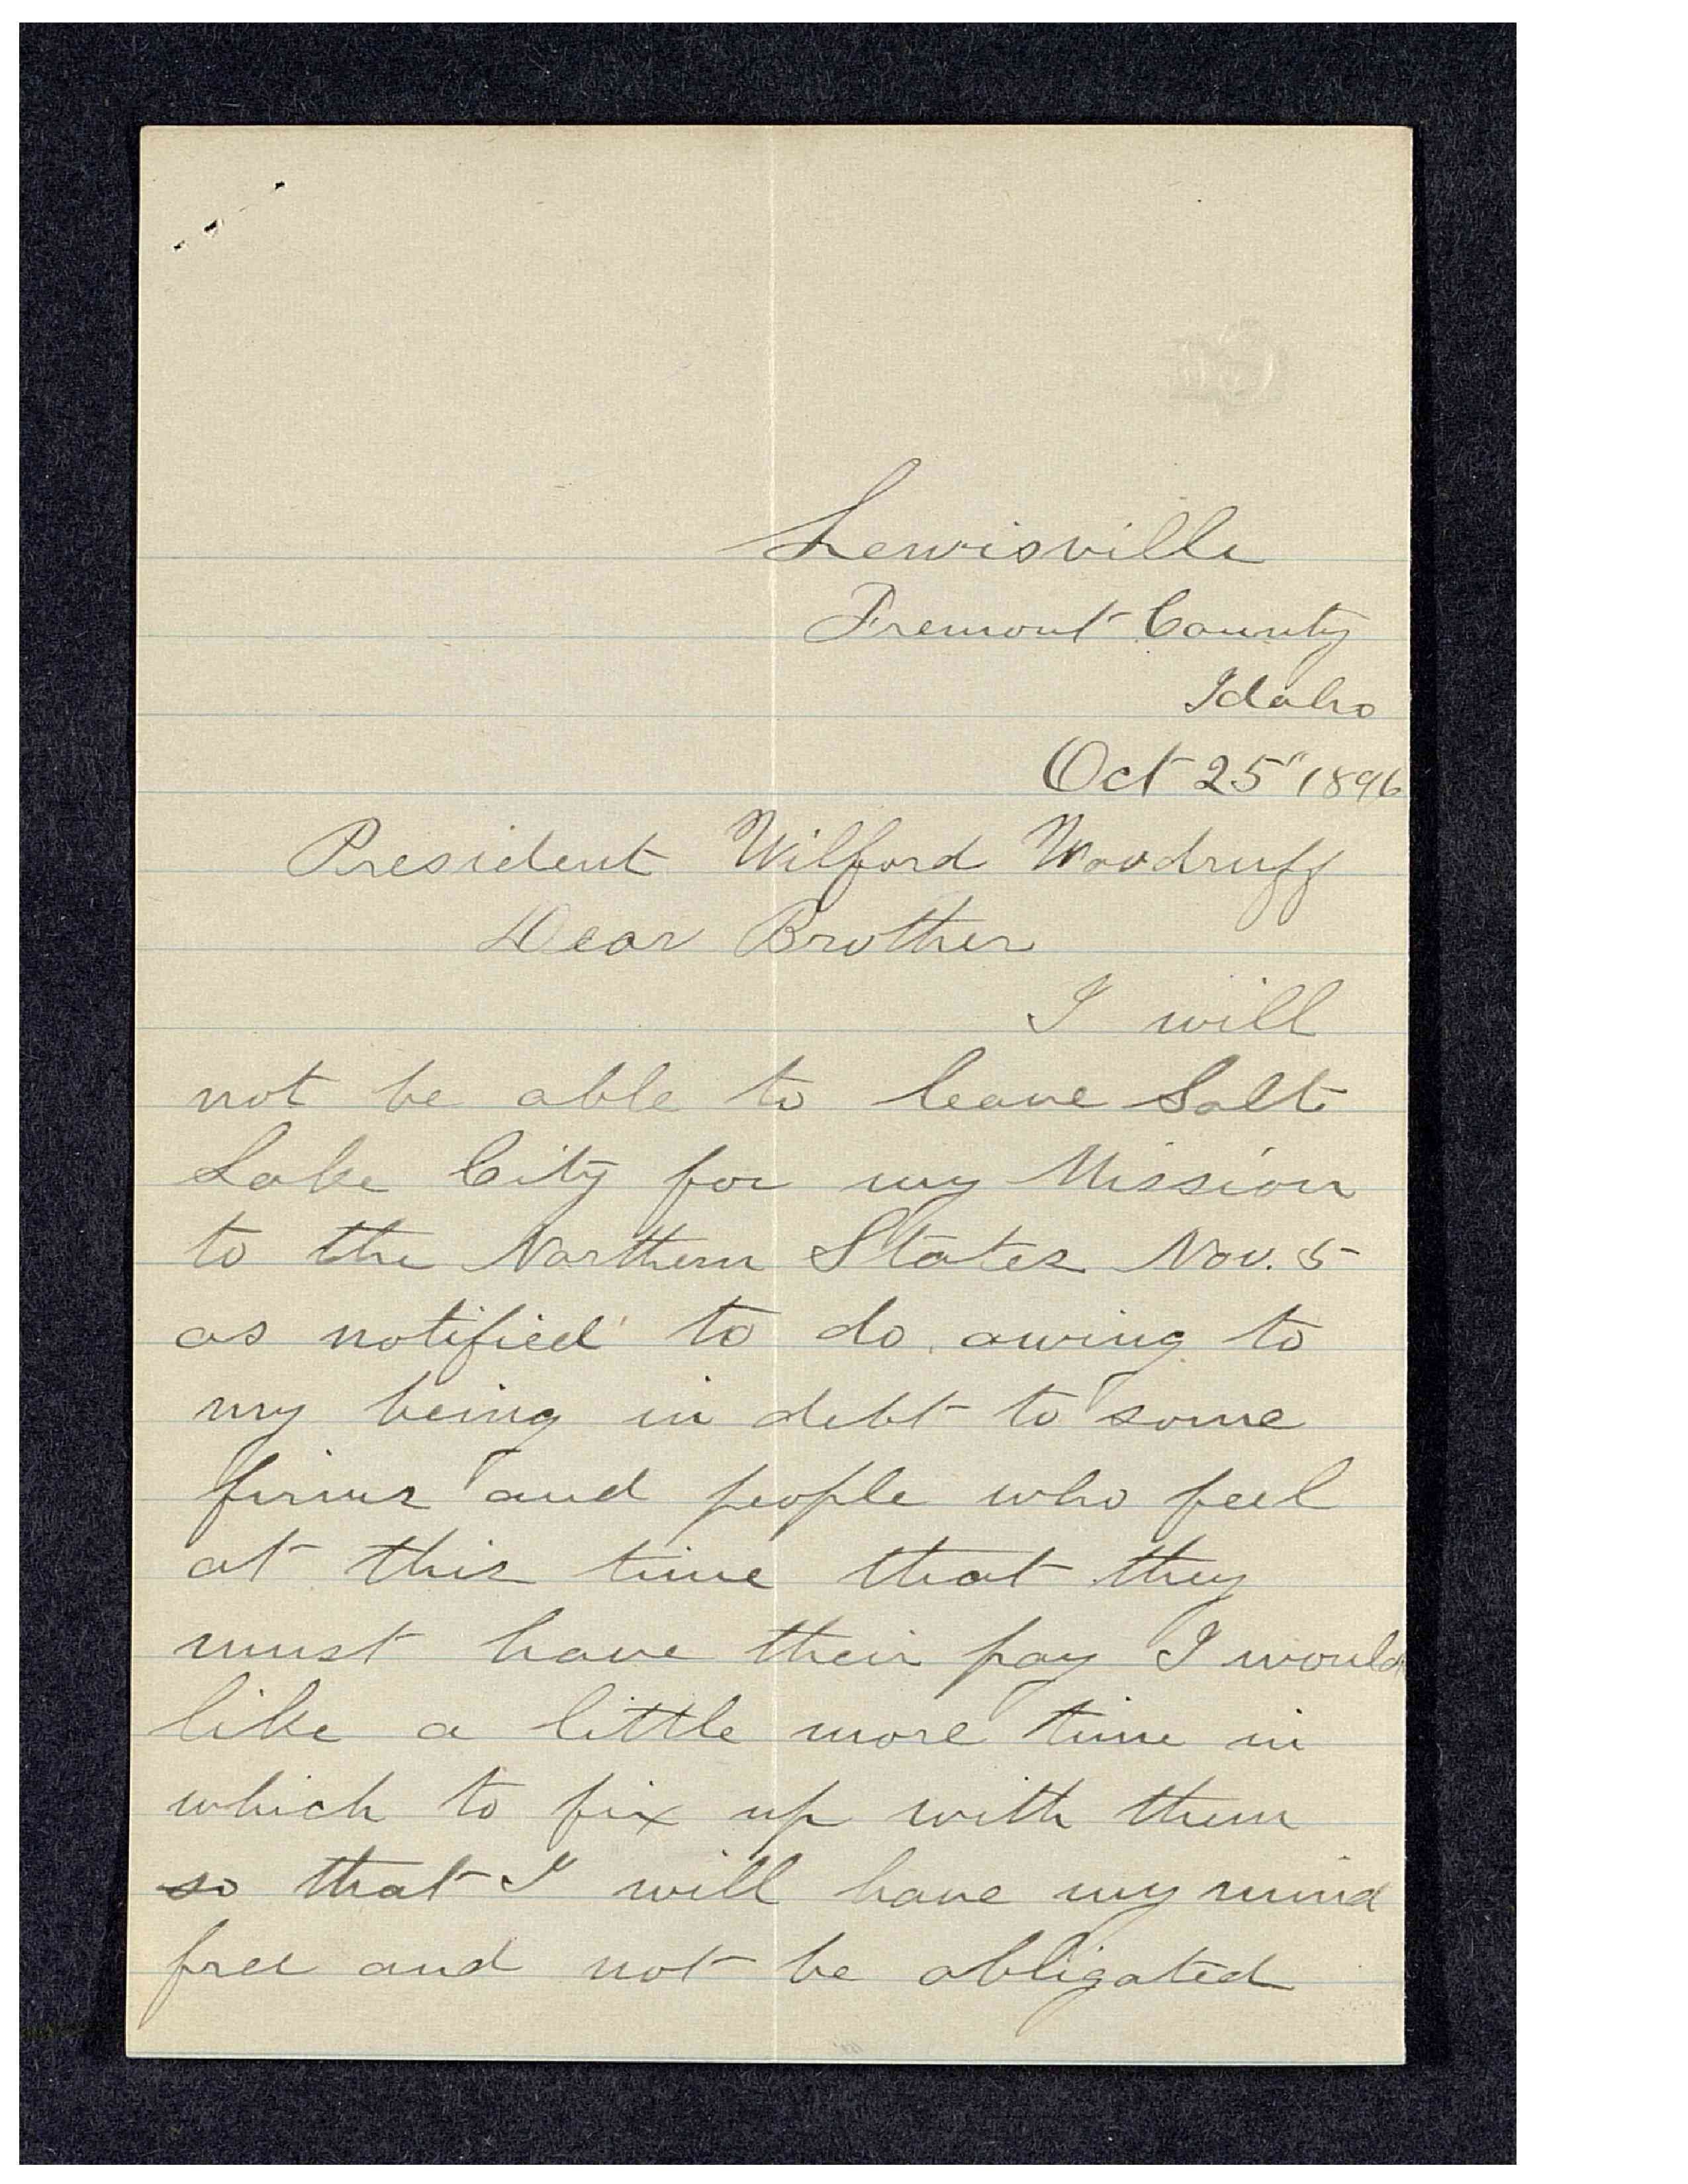 Lewisville
Fremont County
Idaho
Oct 25" 1896
President Wilford Woodruff
Dear Brother
I will
not be able to leave Salt
Lake City for my Mission
to the Northern States Nov. 5
as notified to do owing to
my being in debt to some
firms and people who feel
at this time that they
must have their pay I would
like a little more time in
which to fix up with them
so that I will have my mind
free and not be obligated